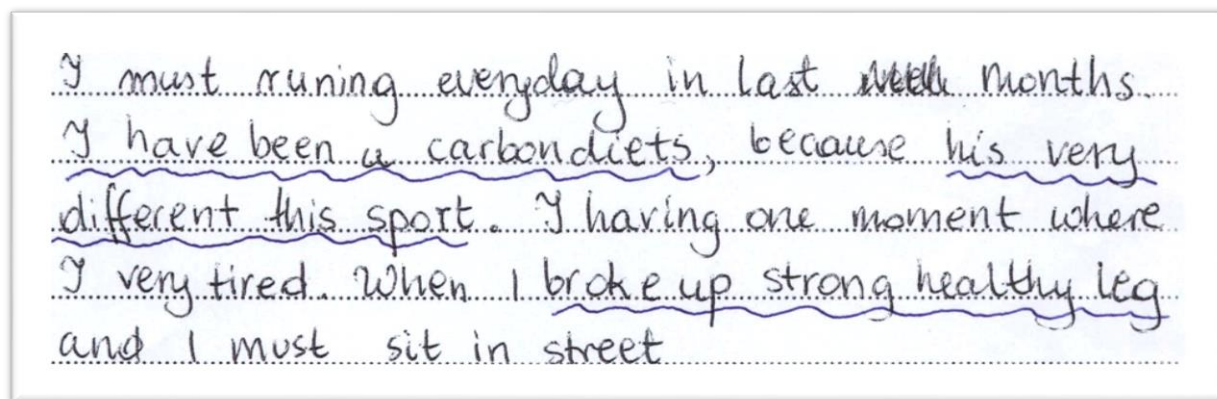 I must runing everyday in last months.
I have been a carbondiets, because his very
different this sport. I having one moment where
I very tired. When I broke up strong healthy leg
and I must sit in street